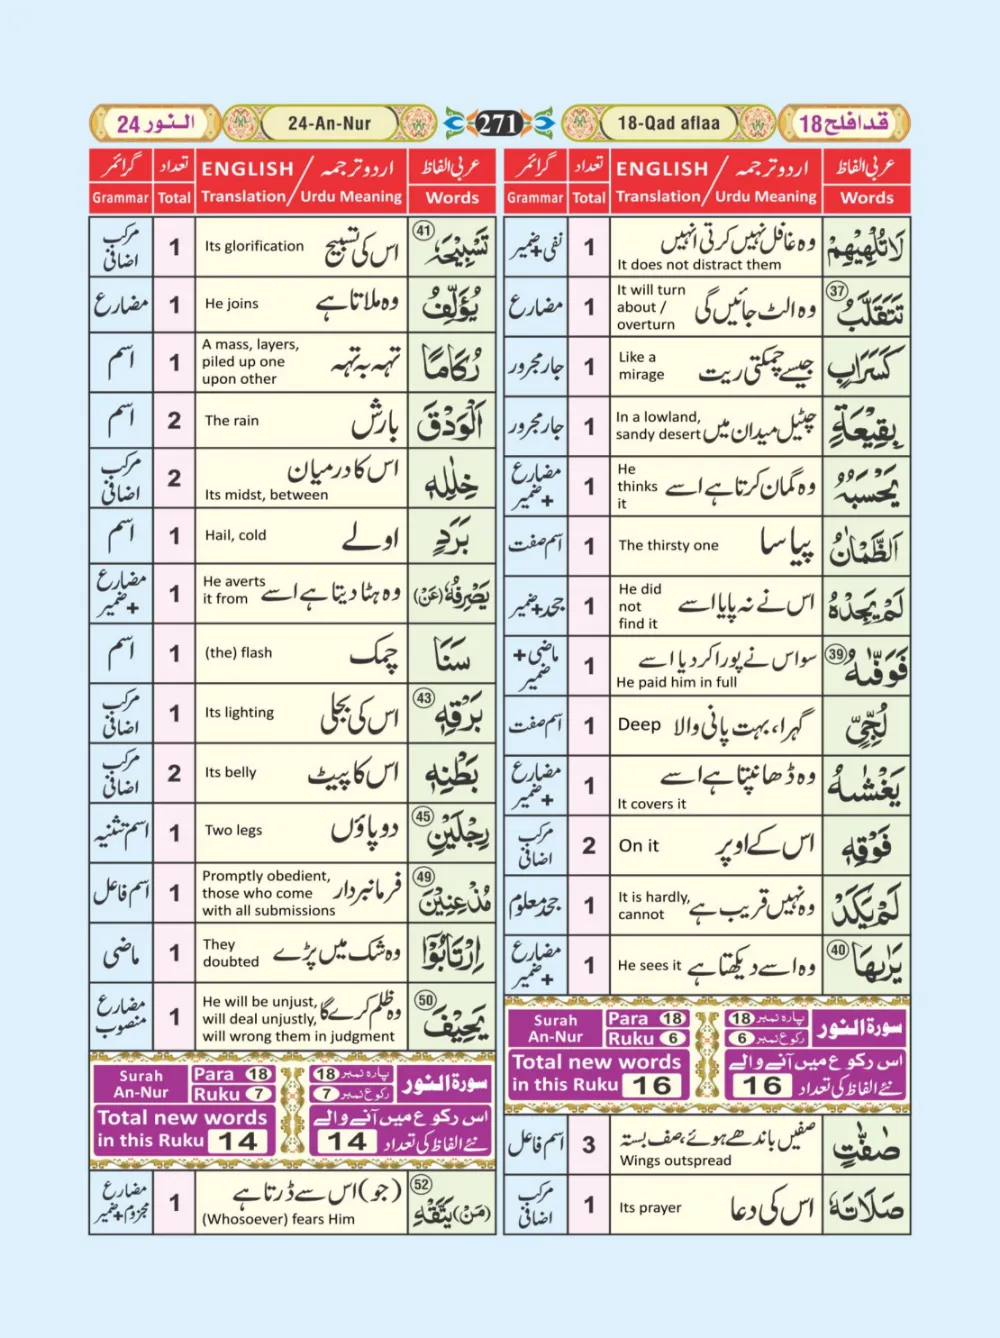 النور 24
24-An-Nur
271
18-Qad aflaa
قد افلح 18
عربی الفاظ
اردو ترجمہ / ENGLISH
تعداد
گرائمر
Words
Translation / Urdu Meaning
Total
Grammar
لَا تُلْهِيْهِمْ
وہ غافل نہیں کرتی انہیں
It does not distract them
1
نفی+ضمیر
تَتَقَلَّبُ 37
وہ الٹ جائیں گی
It will turn
about /
overturn
1
مضارع
كَسَرَابٍ
جیسے چمکتی ریت
Like a
mirage
1
جار مجرور
بِقِيْعَةٍ
چٹیل میدان میں
In a lowland,
sandy desert
1
جار مجرور
يَحْسَبُهُ
وہ گمان کرتا ہے اسے
He
thinks
it
1
مضارع
+ضمیر
الظَّمْاٰنُ
پیاسا
The thirsty one
1
اسم صفت
لَمْ يَجِدْهُ
اس نے نہ پایا اسے
He did
not
find it
1
جحد+ضمیر
فَوَفّٰىهُ 39
سو اس نے پورا کر دیا اسے
He paid him in full
1
ماضی+
ضمیر
لُجِّيٍّ
گہرا، بہت پانی والا
Deep
1
اسم صفت
يَغْشٰىهُ
وہ ڈھانپتا ہے اسے
It covers it
1
مضارع
+ضمیر
فَوْقِهٖ
اس کے اوپر
On it
2
مرکب
اضافی
لَمْ يَكَدْ
وہ نہیں قریب ہے
It is hardly,
cannot
1
جحد معلوم
يَرٰىهَا 40
وہ اسے دیکھتا ہے
He sees it
1
مضارع
+ضمیر
سورة النور
پارہ نمبر 18
رکوع نمبر 6
Para 18
Ruku 6
Surah
An-Nur
اس رکوع میں آنے والے
نئے الفاظ کی تعداد 16
Total new words
in this Ruku 16
صٰٓفّٰتٍ
صفیں باندھے ہوئے، صف بستہ
Wings outspread
3
اسم فاعل
صَلَاتَهٗ
اس کی دعا
Its prayer
1
مرکب
اضافی
عربی الفاظ
اردو ترجمہ / ENGLISH
تعداد
گرائمر
Words
Translation / Urdu Meaning
Total
Grammar
تَسْبِيْحَهٗ 41
اس کی تسبیح
Its glorification
1
مرکب
اضافی
يُؤَلِّفُ
وہ ملاتا ہے
He joins
1
مضارع
رُكَامًا
تہہ بہ تہہ
A mass, layers,
piled up one
upon other
1
اسم
الْوَدْقَ
بارش
The rain
2
اسم
خِلٰلِهٖ
اس کا درمیان
Its midst, between
2
مرکب
اضافی
بَرَدٍ
اولے
Hail, cold
1
اسم
يَصْرِفُهٗ (عَنْ)
وہ ہٹا دیتا ہے اسے
He averts
it from
1
مضارع
+ضمیر
سَنَا
چمک
(the) flash
1
اسم
بَرْقِهٖ 43
اس کی بجلی
Its lighting
1
مرکب
اضافی
بَطْنِهٖ
اس کا پیٹ
Its belly
2
مرکب
اضافی
رِجْلَيْنِ 45
دو پاؤں
Two legs
1
اسم تثنیہ
مُذْعِنِيْنَ 49
فرمانبردار
Promptly obedient,
those who come
with all submissions
1
اسم فاعل
اِرْتَابُوْا
وہ شک میں پڑے
They
doubted
1
ماضی
يَحِيْفَ 50
وہ ظلم کرے گا
He will be unjust,
will deal unjustly,
will wrong them in judgment
1
مضارع
منصوب
سورة النور
پارہ نمبر 18
رکوع نمبر 7
Para 18
Ruku 7
Surah
An-Nur
اس رکوع میں آنے والے
نئے الفاظ کی تعداد 14
Total new words
in this Ruku 14
(مَنْ) يَتَّقْهِ 52
(جو) اس سے ڈرتا ہے
(Whosoever) fears Him
1
مضارع
مجزوم+ضمیر